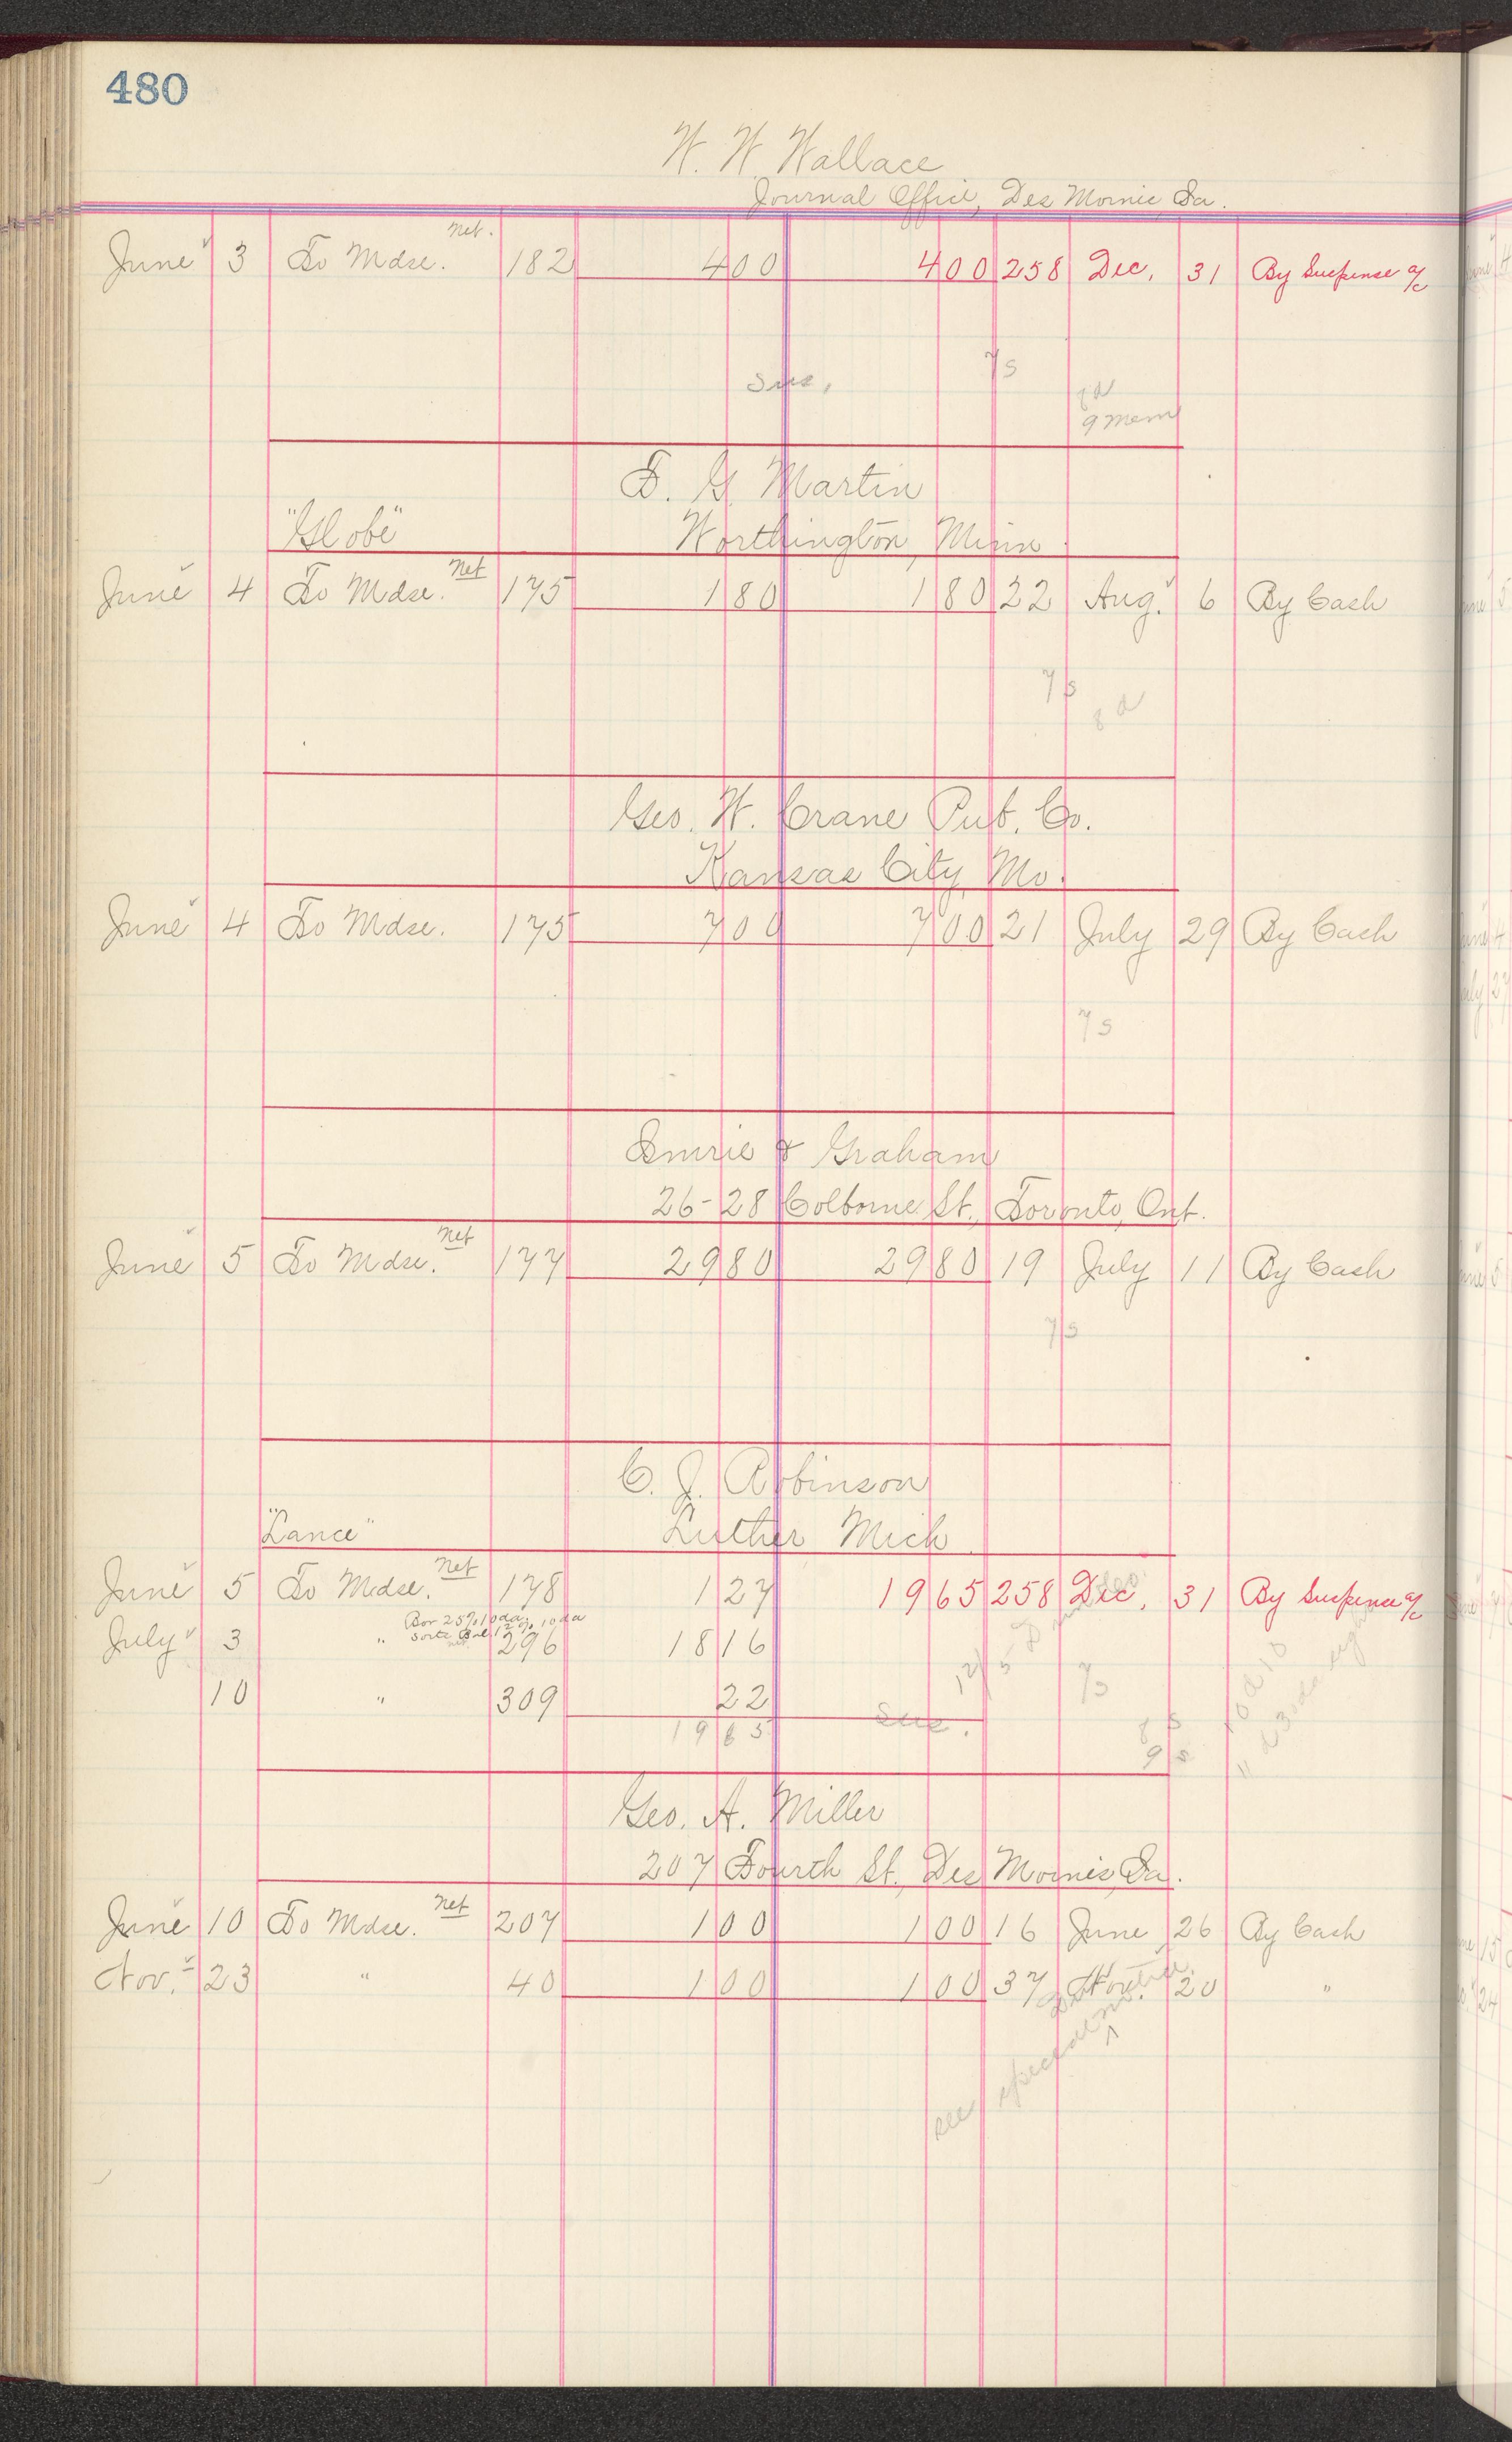 480
W. W. Wallace
Journal Office, Des Moines Ia.
June 3 To Mdse. net. 182 4 00 4 00 258 Dec. 31 By Suspense a/c
7s
Sus.
9 mem
T. G. Martin
"Globe" Worthington, Minn.
June 4 To Mdse. Net 175 1 80 1 80 22 Aug. 6 By Cash
7s
8 d
Geo. W. Crane Pub. Co.
Kansas City, Mo.
June 4 To Mdse. 175 7 00 7 00 21 July 29 By Cash
7s
Imrie & Graham
26-28 Colborne St., Toronto, Ont.
June 5 To Mdse. Net 177 29 80 29 80 19 July 11 By Cash
7s
C. J. Robinson
"Lance" Luther Mich.
June 5 To Mdse. Net 178 1 27 19 65 258 Dec. 31 By Suspense a/c
July 3 " 296 18 16
10 " 309 22
19 65 Sus.
7s
8 s
9 s
Geo. A. Miller
207 Fourth St., Des Moines, Ia.
June 10 To Mdse. Net 207 1 00 1 00 16 June 26 By Cash
Nov. 23 " 40 1 00 1 00 37 Nov. 20 "
see specimen